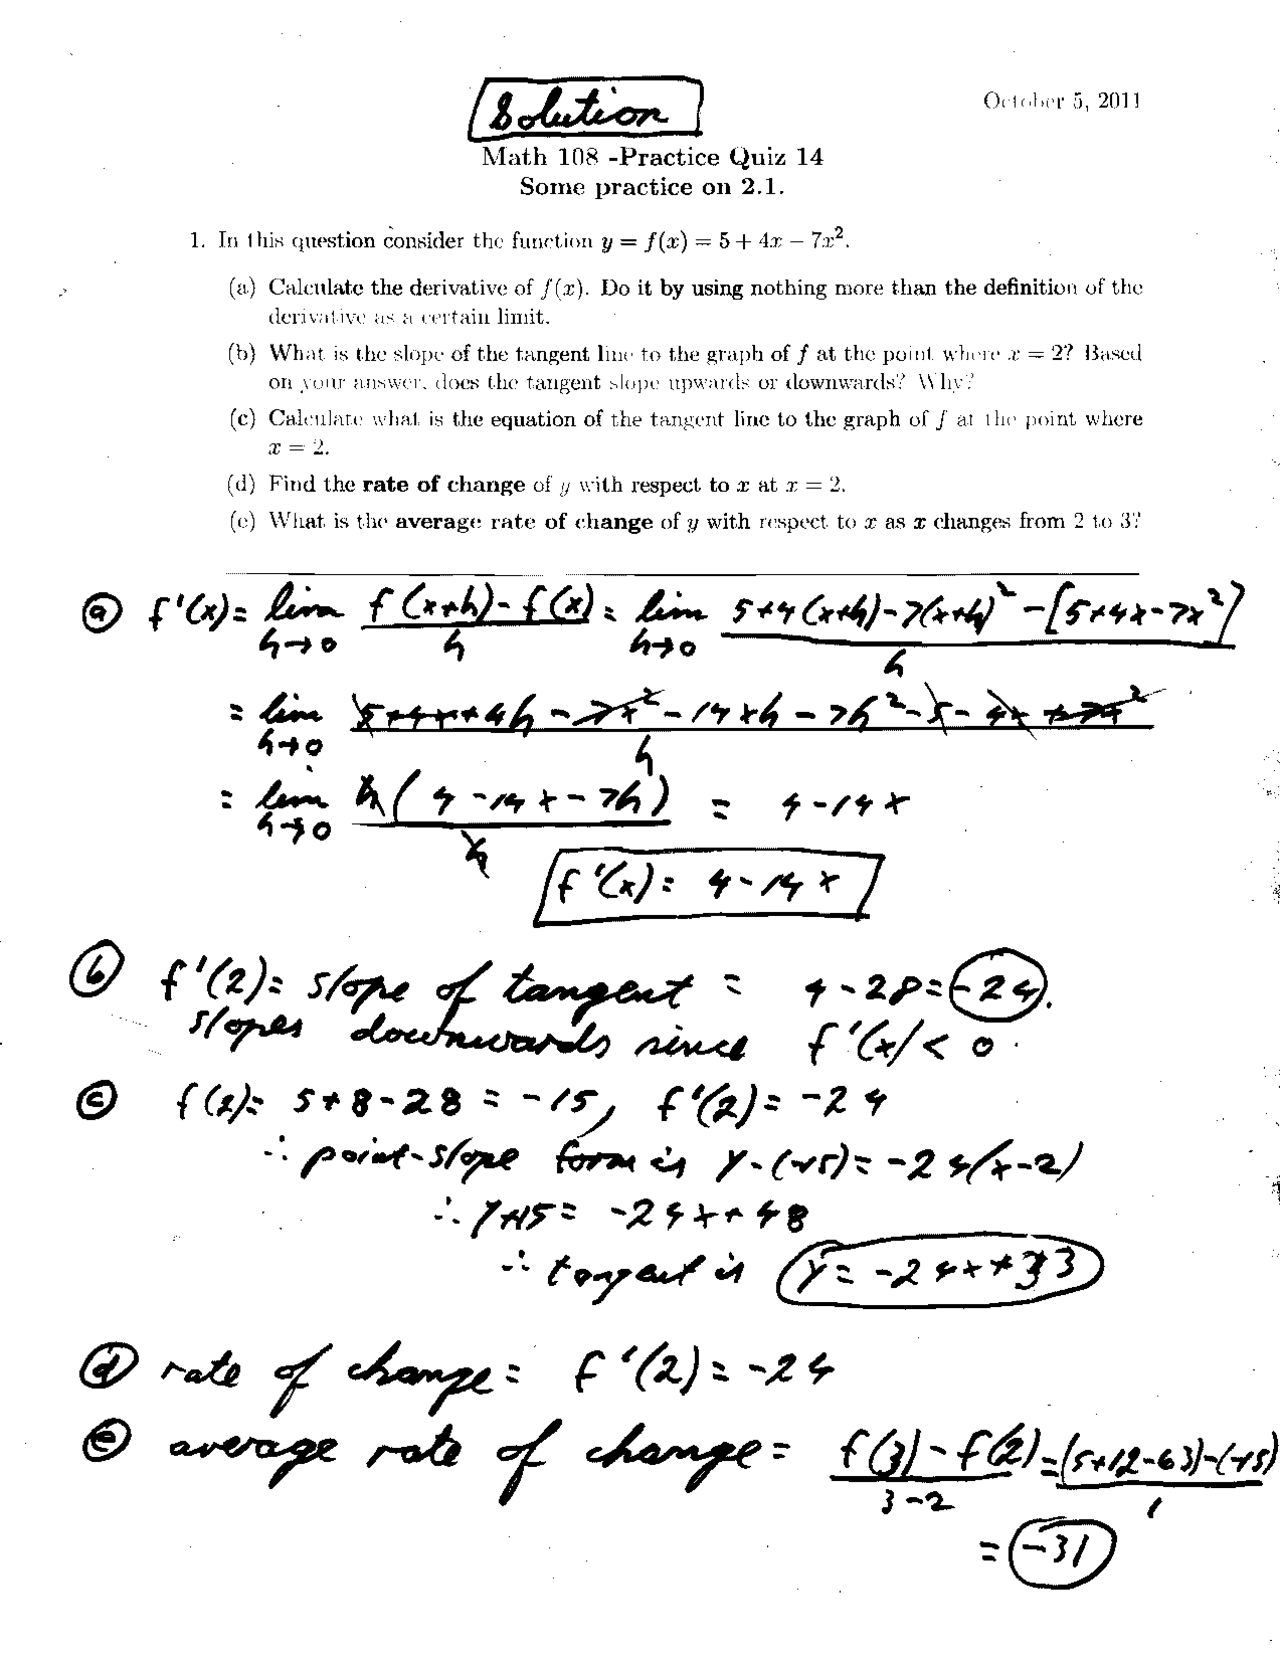 Solution
October 5, 2011
Math 108 -Practice Quiz 14
Some practice on 2.1.
1. In this question consider the function y = f(x) = 5 + 4x − 7x².
(a) Calculate the derivative of f(x). Do it by using nothing more than the definition of the
derivative as a certain limit.
(b) What is the slope of the tangent line to the graph of f at the point where x = 2? Based
on your answer, does the tangent slope upwards or downwards? Why?
(c) Calculate what is the equation of the tangent line to the graph of f at the point where
x = 2.
(d) Find the rate of change of y with respect to x at x = 2.
(e) What is the average rate of change of y with respect to x as x changes from 2 to 3?
(a) f'(x) = lim h→0 (f(x+h) - f(x))/h = lim h→0 (5+4(x+h)-7(x+h)² - [5+4x-7x²])/h
= lim h→0 (5+4x+4h-7x²-14xh-7h²-5-4x+7x²)/h
= lim h→0 h(4-14x-7h)/h = 4-14x
f'(x) = 4-14x
(b) f'(2) = slope of tangent = 4-28 = -24.
slopes downwards since f'(x) < 0.
(c) f(2) = 5+8-28 = -15, f'(2) = -24
∴ point-slope form is y-(-15) = -24(x-2)
∴ y+15 = -24x+48
∴ tangent is y = -24x+33
(d) rate of change = f'(2) = -24
(e) average rate of change = (f(3) - f(2))/(3-2) = ((5+12-63)-(-15))/1
= -31